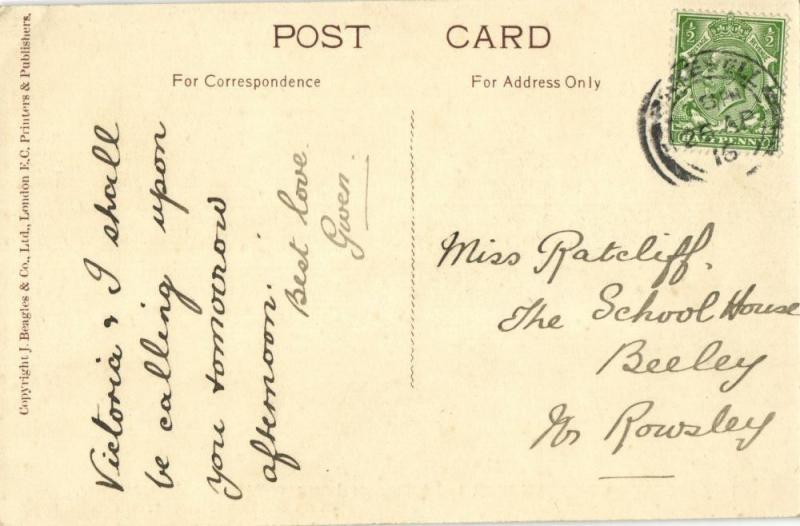 POST CARD
For Correspondence
For Address Only
Copyright J. Beagles & Co., Ltd., London E.C. Printers & Publishers.
Victoria & I shall
be calling upon
you tomorrow
afternoon.
Best love
Gwen.
Miss Ratcliff.
The School House
Beeley
Nr Rowsley
½ ½
HALFPENNY
26 AP
16